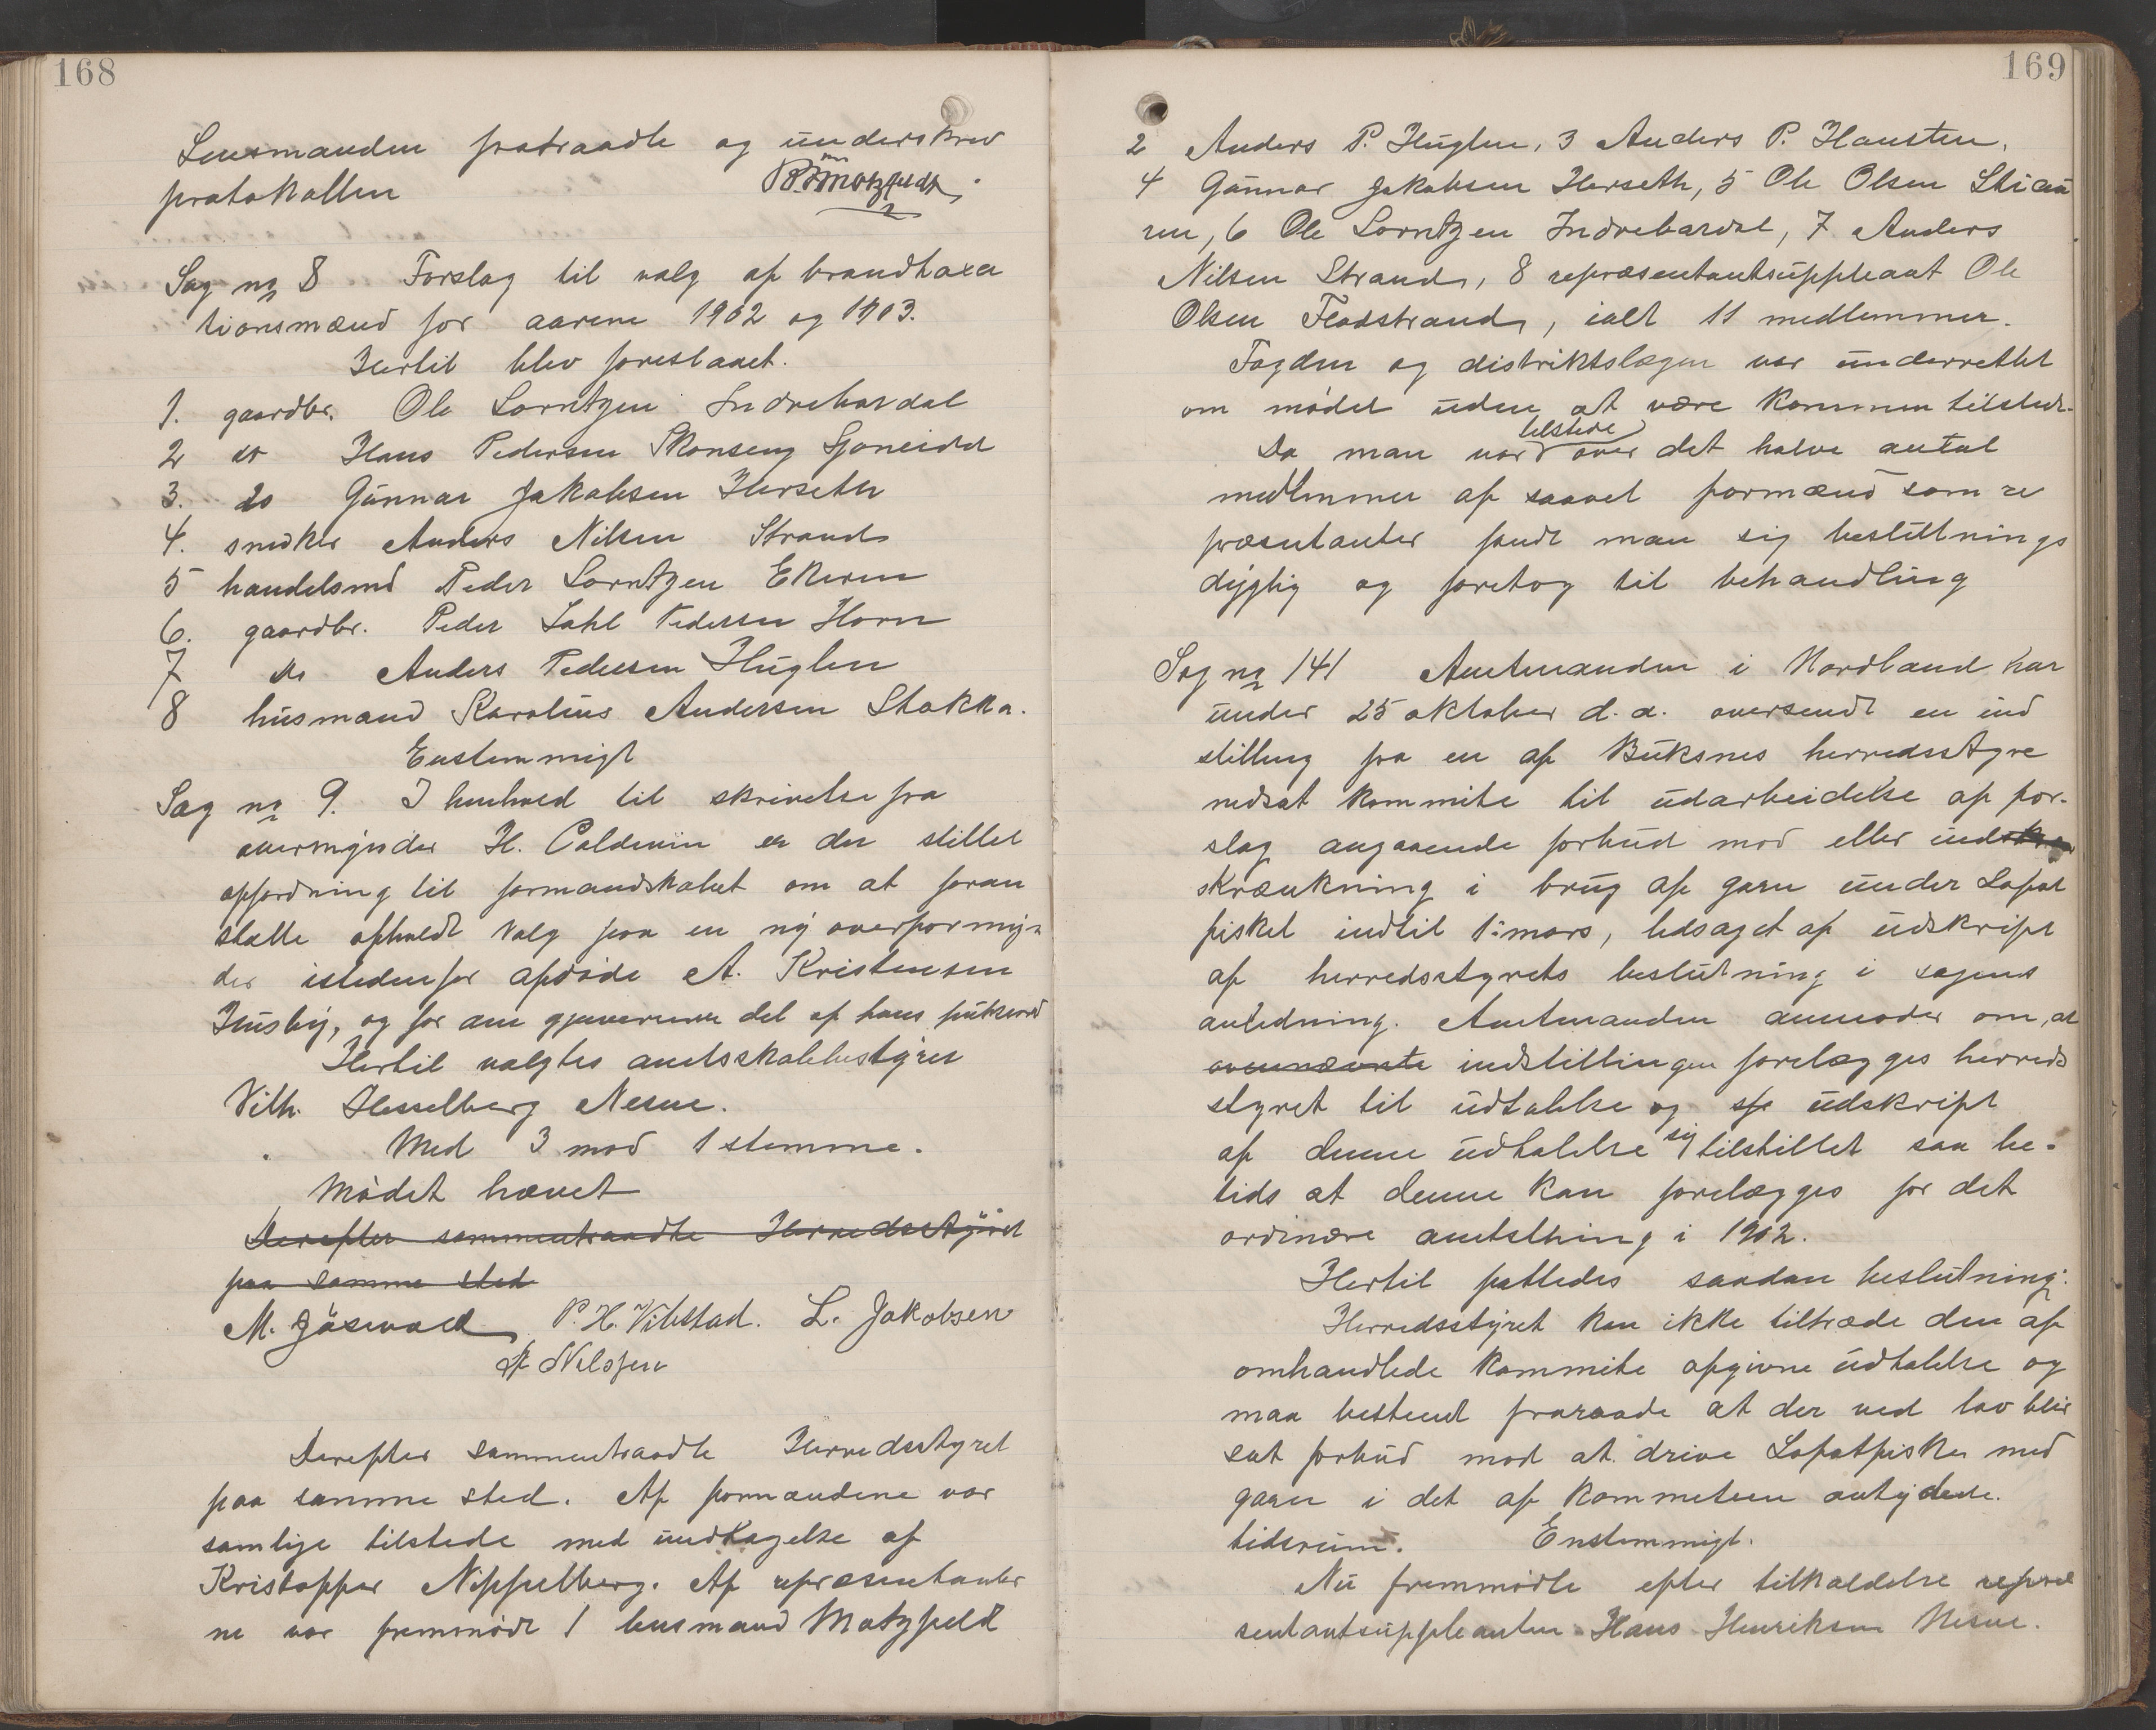 168
Lensmanden fratraadte og underskrev
protokollen
Sag no 8 Forslag til valg af brandtaxa
tionsmænd for aarene 1902 og 1903.
Hertil blev foreslaaet.
1. gaardbr. Ole Lorntzen Indrebardal
2 do Hans Pedersen Skonseng Sjoneidet
3. do Gunnar Jakobsen Herseth
4. snedker Anders Nilsen Strand
5 handelsmd Peder Lorntzen Ekeren
6. gaardbr. Peder Dahl Pedersen Horn
7 do Anders Pedersen Huglen
8 husmand Karolius Andersen Stokka.
Enstemmigt
Sag no 9. I henhold til skrivelse fra
overmynder H. Coldevin er der stillet
opfordning til formandskabet om at foran
stalte afholdt valg paa en ny overformyn
der istedenfor afdøde A. Kristensen
Husby, og for den gjenværende del af hans funktionstid
Hertil valgtes amtsskolebestyrer
Vilh. Hesselberg Nesne.
Med 3 mod 1 stemme.
Mødet hævet
Derefter sammentraadte Herredsstyret
paa samme sted
P. H. Vibstad. L. Jakobsen
Nilssen
Derefter sammentraadte Herredsstyret
paa samme sted. Af formændene var
samlige tilstede med undtagelse af
Kristoffer Nippelberg. Af repræsentanter
ne var fremmødt 1 lensmand Motzfeldt
169
2 Anders P. Huglen, 3 Anders P. Hausten,
4 Gunnar Jakobsen Herseth, 5 Ole Olsen
6 Ole Lorntzen Indrebardal, 7 Anders
Nilsen Strand, 8 repræsentantsuppleant Ole
Olsen Flodstrand, ialt 11 medlemmer.
Fogden og distriktslægen var underrettet
om mødet uden at være kommen tilstede.
Da man var tilstede over det halve antal
medlemmer af saavel formænd som re
præsentanter fandt man sig beslutnings
dygtig og foretog til behandling
Sag no 141 Amtmanden i Nordland har
under 25 oktober d.a. oversendt en ind
stilling fra en af Buksnes herredsstyre
nedsat kommite til udarbeidelse af for-
slag angaaende forbud mod eller indskræn
skrænkning i brug af garn under Lofot
fisket indtil 1: mars, ledsaget af udskript
af herredsstyrets beslutning i sagens
anledning. Amtmanden anmoder om, at
ovennævnte indstillingen forelægges herreds
styret til udtalelse og udskript
af denne udtalelse sig tilstillet saa be-
tids at denne kan forelægges for det
ordinære amtsthing i 1902.
Hertil fattedes saadan beslutning:
Herredsstyret kan ikke tiltræde den af
omhandlede kommite afgivne udtalelse og
maa bestemt fraraade at der ved lov blir
sat forbud mod at drive Lofotfisker med
garn i det af kommeteen antydede
tidsrum. Enstemmigt.
Nu fremmødte efter tilkaldelse repræ
sentantsuppleanten Hans Henriksen Nesne.